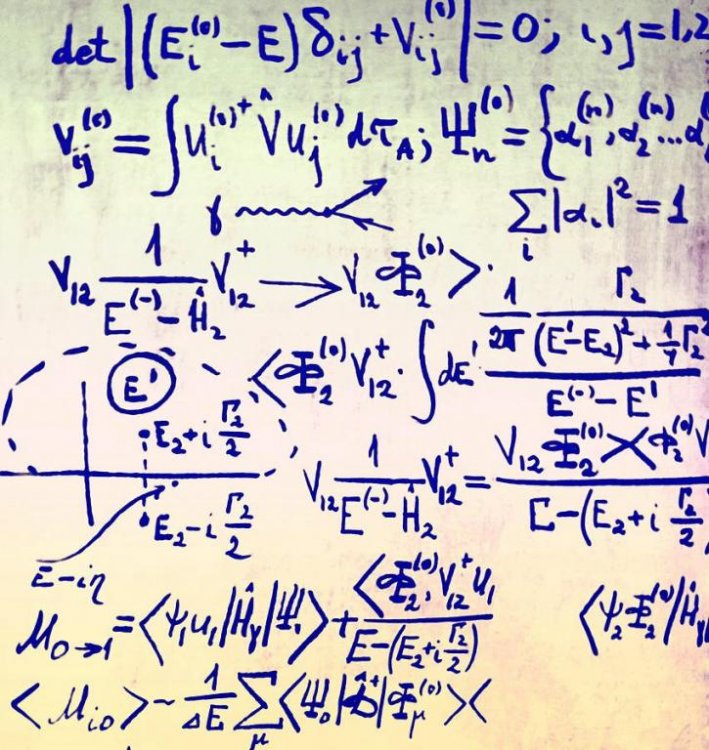 det|(E_i^(0)−E)δ_ij+V_ij^(0)|=0; i,j=1,2
V_ij^(0)=∫u_i^(0)+ V̂ u_j^(0) dτ_A; Ψ_n^(0)={α_1^(n), α_2^(n)...α
γ
∑_i|α_i|²=1
V_12 1/(E^(-)−Ĥ_2) V_12^+ → V_12 Φ_2^(0)>·
<Φ_2^(0) V_12^+·∫dE' (1/2π Γ_2/((E'−E_2)²+1/4Γ_2²))/(E^(-)−E')
E'
E_2+i Γ_2/2
E_2−i Γ_2/2
E−iη
V_12 1/(E^(-)−Ĥ_2) V_12^+=(V_12 Φ_2^(0)><Φ_2^(0) V)/(E−(E_2+i Γ_2/2
M_0→1=<ψ_1 u_1|Ĥ_γ|Ψ_0>+<Φ_2^(0), V_12^+ u_1/(E−(E_2+i Γ_2/2)) <ψ_2 Φ_2^(0)|Ĥ_γ
<M_io>~1/ΔE ∑_μ<Ψ_0||Φ_μ^(0)><